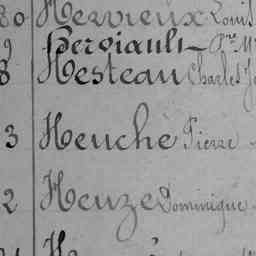 80 Hervieux Louis
9 Herviault
8 Hesteau Charles
3 Heuchè Pierre
2 Heuze Dominique